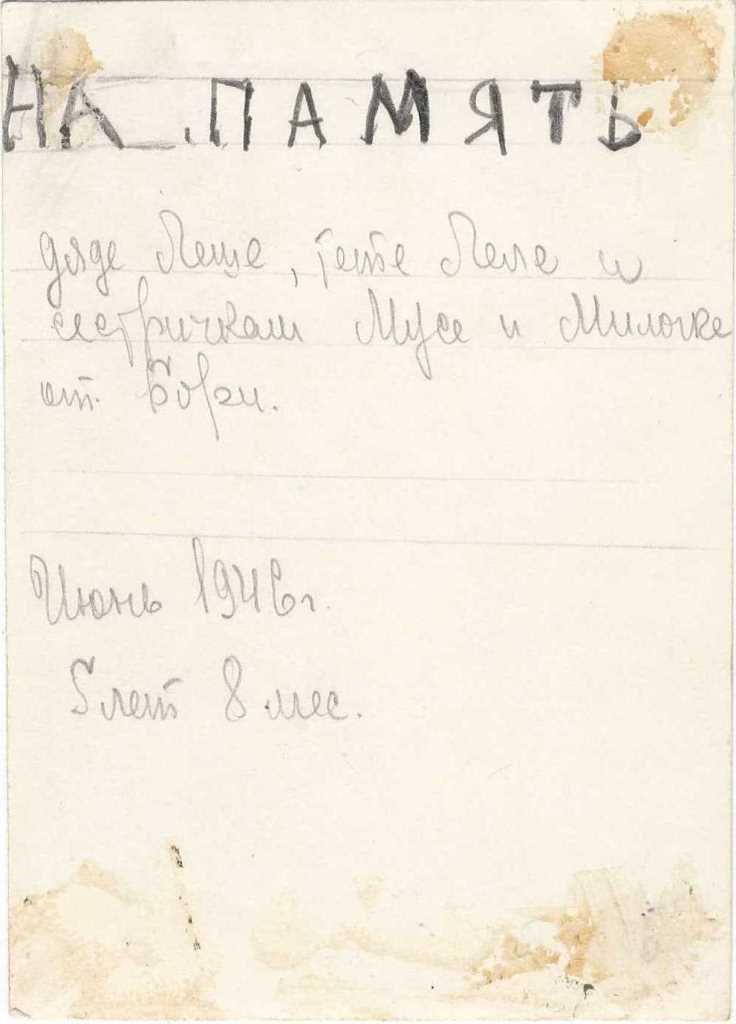 НА ПАМЯТЬ
дяде Леше, тете Леле и
сестричкам Мусе и Милочке
от Бори.
Июнь 1946 г.
5 лет 8 мес.